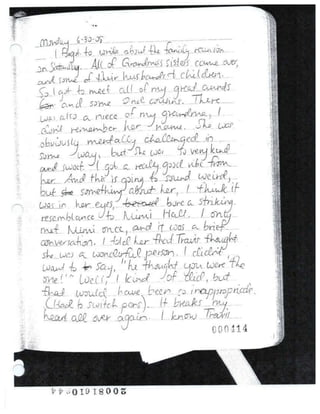 Monday 6-30-08
I forgot to write about the family reunion
on Saturday. All of Grandma's sisters came over,
and some of their husbands + children.
So I got to meet all of my great aunts
and some cousins. There
was also a niece of my grandma, I
don't remember her name. She was
obviously mentally challenged in
some way, but she was very kind
and sweet. I got a really good vibe from
her. And this is going to sound weird,
but she something about her, I think it
was in her eyes, bore a striking
resemblance to Nimi Hall. I only
met Nimi once, and it was a brief
conversation. I told her that Travis thought
she was a wonderful person. I didn't
want to say, "he thought you were 'the
one!'" Well, I kind of did, but
that would have been so inappropriate.
(Had to switch pens). It breaks my
heart all over again. I know Travis
000414
20081610
44